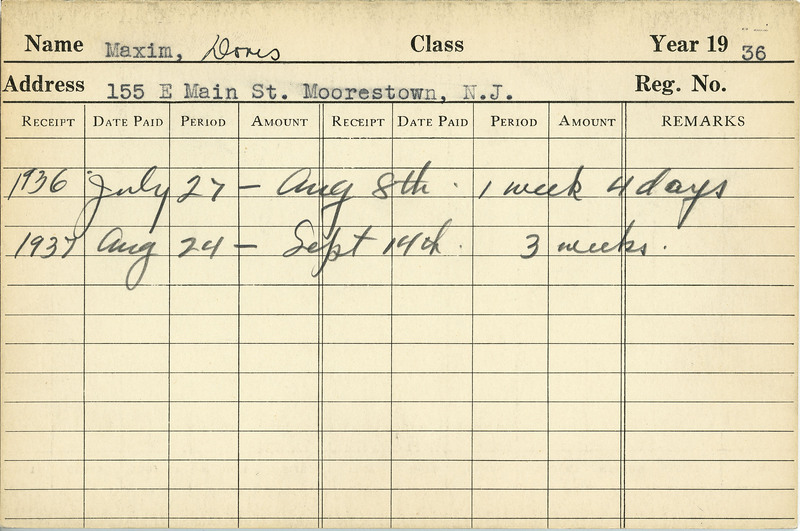 Name Maxim, Doris Class Year 19 36
Address 155 E Main St. Moorestown, N.J. Reg. No.
RECEIPT DATE PAID PERIOD AMOUNT RECEIPT DATE PAID PERIOD AMOUNT REMARKS
1936 July 27 — Aug 8th. 1 week 4 days
1937 Aug 24 — Sept 14th. 3 weeks.